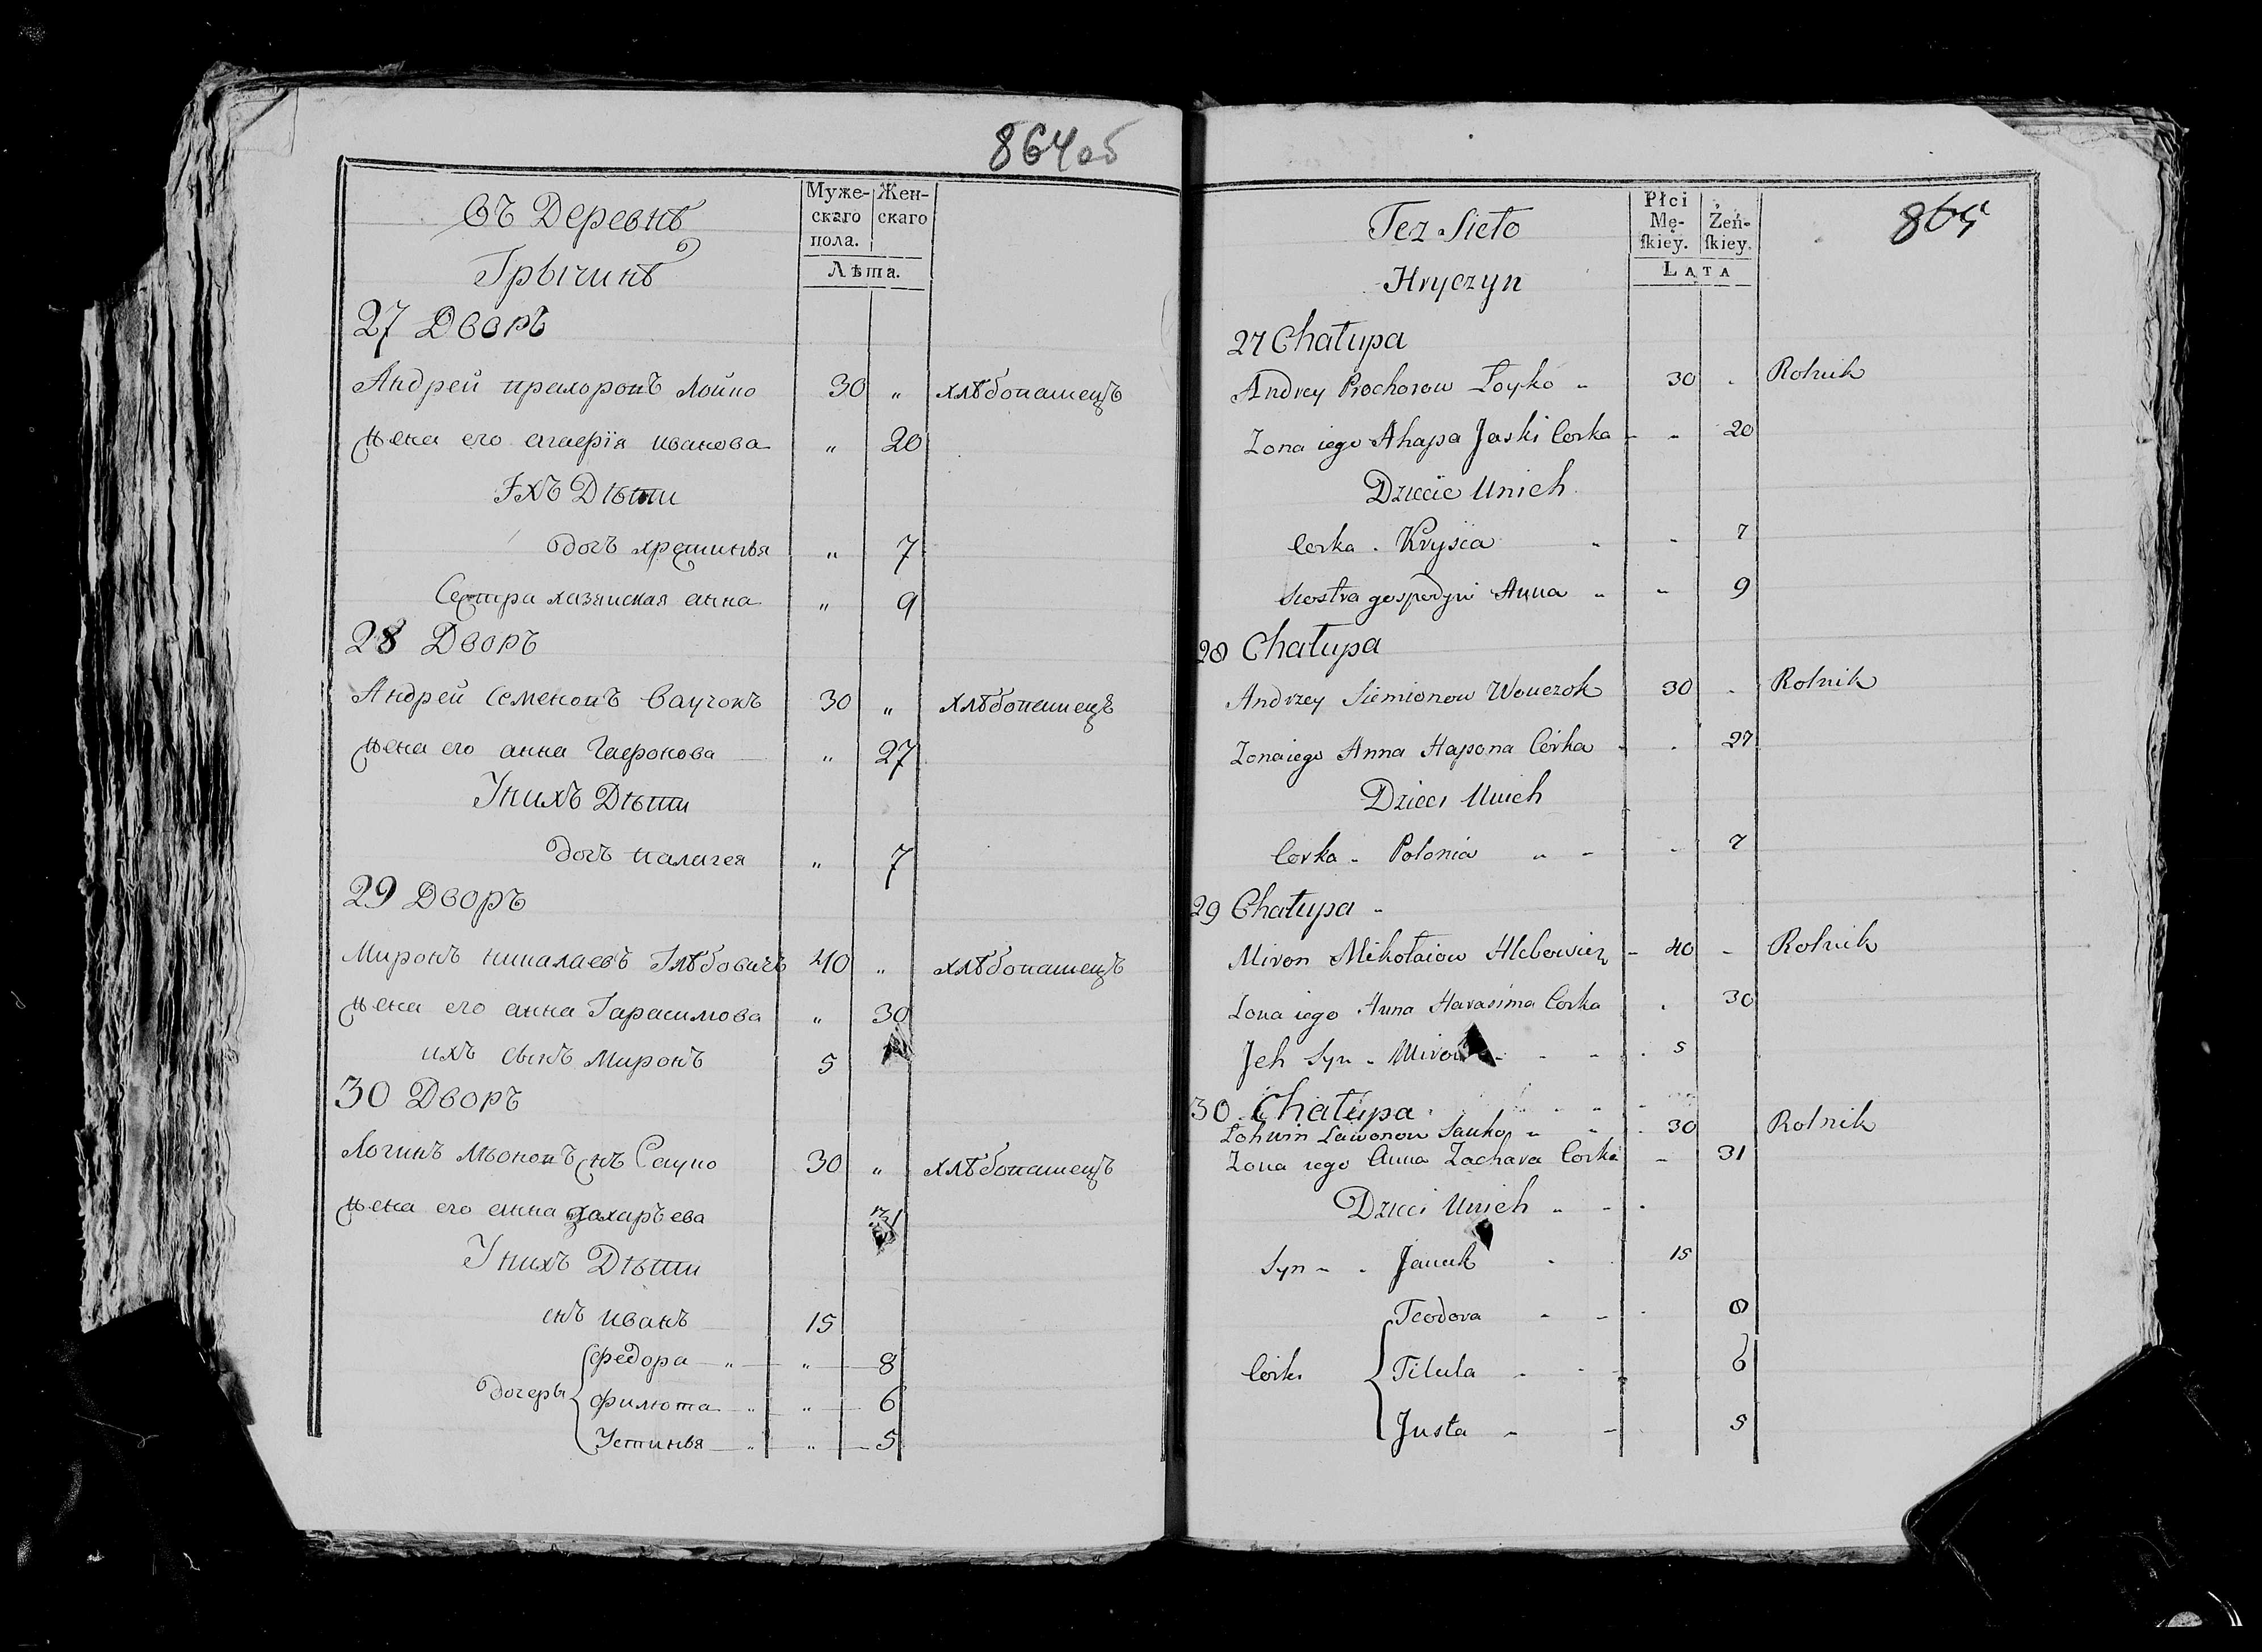 864об
Въ Деревнѣ
Грычинѣ
Муже-
скаго
пола.
Жен-
скаго
Лѣта.
27 Дворъ
Андрей прахоровъ Лойко 30 „ хлѣбопашецъ
жена его агаерія иванова „ 20
Ихъ Дѣти
дочъ хрстинья „ 7
Сестра хазяиская анна „ 9
28 Дворъ
Андрей Семеновъ Ваучокъ 30 „ хлѣбопашецъ
жена его анна Гаеронова „ 27
Уних Дѣти
дочъ палагея „ 7
29 Дворъ
Миронъ никалаевъ Глѣбовичъ 40 „ хлѣбопашецъ
жена его анна Гарасимова „ 30
ихъ сынъ Миронъ 5
30 Дворъ
Логинъ Сауко 30 „ хлѣбопашецъ
жена его анна захаръева 31
Унихъ Дѣти
снъ иванъ 15
Дочеры
Федора „ „ 8
Филюта „ „ 6
Устинья „ „ 5
865
Tez Sieło
Hryczyn
Płci
Mę-
ſkiey.
Żeń-
ſkiey.
LATA
27 Chałupa
Andrey Prochorow Łoyko 30 Rolnik
Zona iego Ahapa Jaski Corka 20
Dziecie Unich
Corka Krysia 7
Siostra gospodyni Anna 9
28 Chałupa
Andrzey Siemionow Wouczok 30 Rolnik
Zona iego Anna Hapona Córka 27
Dzieci Unich
Corka Polonia 7
29 Chałupa
Miron Mikołaiow Hlebowicz 40 Rolnik
Zona iego Anna Harasima Corka 30
Jch Syn Miron 5
30 Chałupa
Łohwin Lawonow Sauko 30 Rolnik
Zona iego Anna Zachara Corka 31
Dzieci Unich
Syn Januk 15
Corki
Teodora 8
Tilula 6
Justa 5